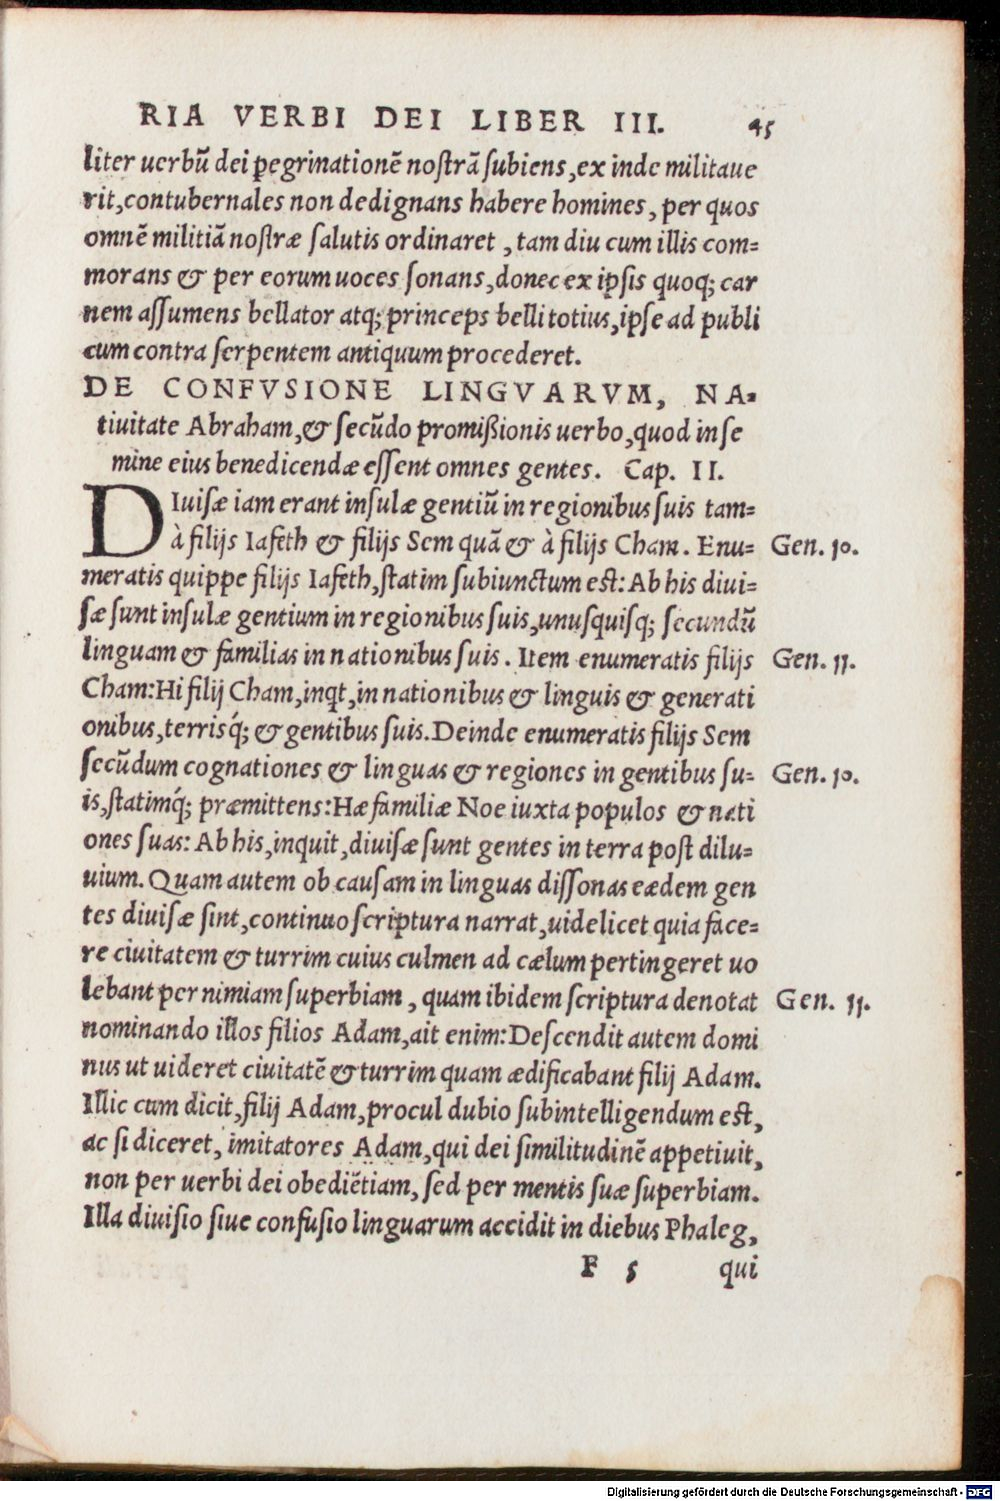 RIA VERBI DEI LIBER III. 45
liter uerbū dei ꝑegrinationē noſtrā ſubiens,ex inde militaue
rit,contubernales non dedignans habere homines, per quos
omnē militiā noſtræ ſalutis ordinaret , tam diu cum illis com=
morans & per eorum uoces ſonans,donec ex ipſis quoq; car
nem aſſumens bellator atq; princeps belli totius,ipſe ad publi
cum contra ſerpentem antiquum procederet.
DE CONFVSIONE LINGVARVM, NA=
tiuitate Abraham,& ſecūdo promißionis uerbo,quod in ſe
mine eius benedicendæ eſſent omnes gentes. Cap. II.
DIuiſæ iam erant inſulæ gentiū in regionibus ſuis tam=
à filijs Iafeth & filijs Sem quā & à filijs Cham. Enu= Gen. 10.
meratis quippe filijs Iafeth,ſtatim ſubiunctum eſt: Ab his diui=
ſæ ſunt inſulæ gentium in regionibus ſuis,unuſquiſq; ſecundū
linguam & familias in nationibus ſuis. Item enumeratis filijs Gen. 11.
Cham:Hi filij Cham,inqt,in nationibus & linguis & generati
onibus,terrisq́; & gentibus ſuis.Deinde enumeratis filijs Sem
ſecūdum cognationes & linguas & regiones in gentibus ſu= Gen. 10.
is,ſtatimq́; præmittens:Hæ familiæ Noe iuxta populos & nati
ones ſuas: Ab his,inquit,diuiſæ ſunt gentes in terra poſt dilu=
uium. Quam autem ob cauſam in linguas diſſonas eædem gen
tes diuiſæ ſint,continuo ſcriptura narrat,uidelicet quia face=
re ciuitatem & turrim cuius culmen ad cælum pertingeret uo
lebant per nimiam ſuperbiam , quam ibidem ſcriptura denotat Gen. 11.
nominando illos filios Adam,ait enim:Deſcendit autem domi
nus ut uideret ciuitatē & turrim quam ædificabant filij Adam.
Illic cum dicit,filij Adam,procul dubio ſubintelligendum eſt,
ac ſi diceret, imitatores Adam,qui dei ſimilitudinē appetiuit,
non per uerbi dei obediētiam, ſed per mentis ſuæ ſuperbiam.
Illa diuiſio ſiue confuſio linguarum accidit in diebus Phaleg,
F 5 qui
Digitalisierung gefördert durch die Deutsche Forschungsgemeinschaft - DFG